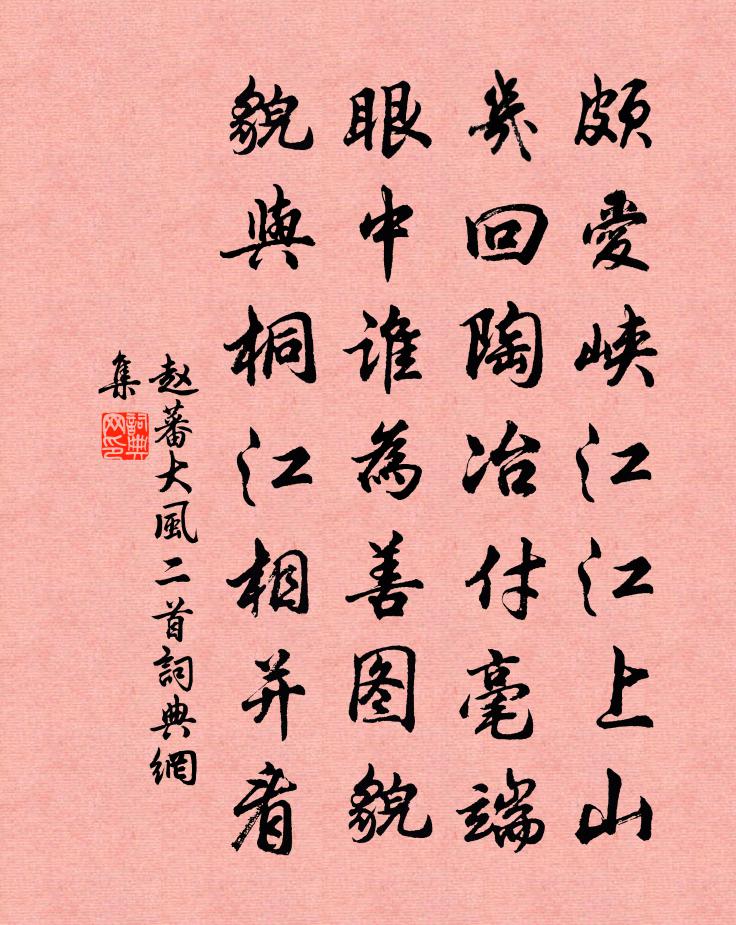 頗愛峽江江上山
幾回陶冶付毫端
眼中誰為善图貌
貌與桐江相并看
赵蕃大風二首詞典網
集
詞典
网印